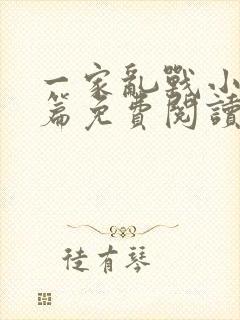 一家亂戰小
篇免費閱讀
徒有琴